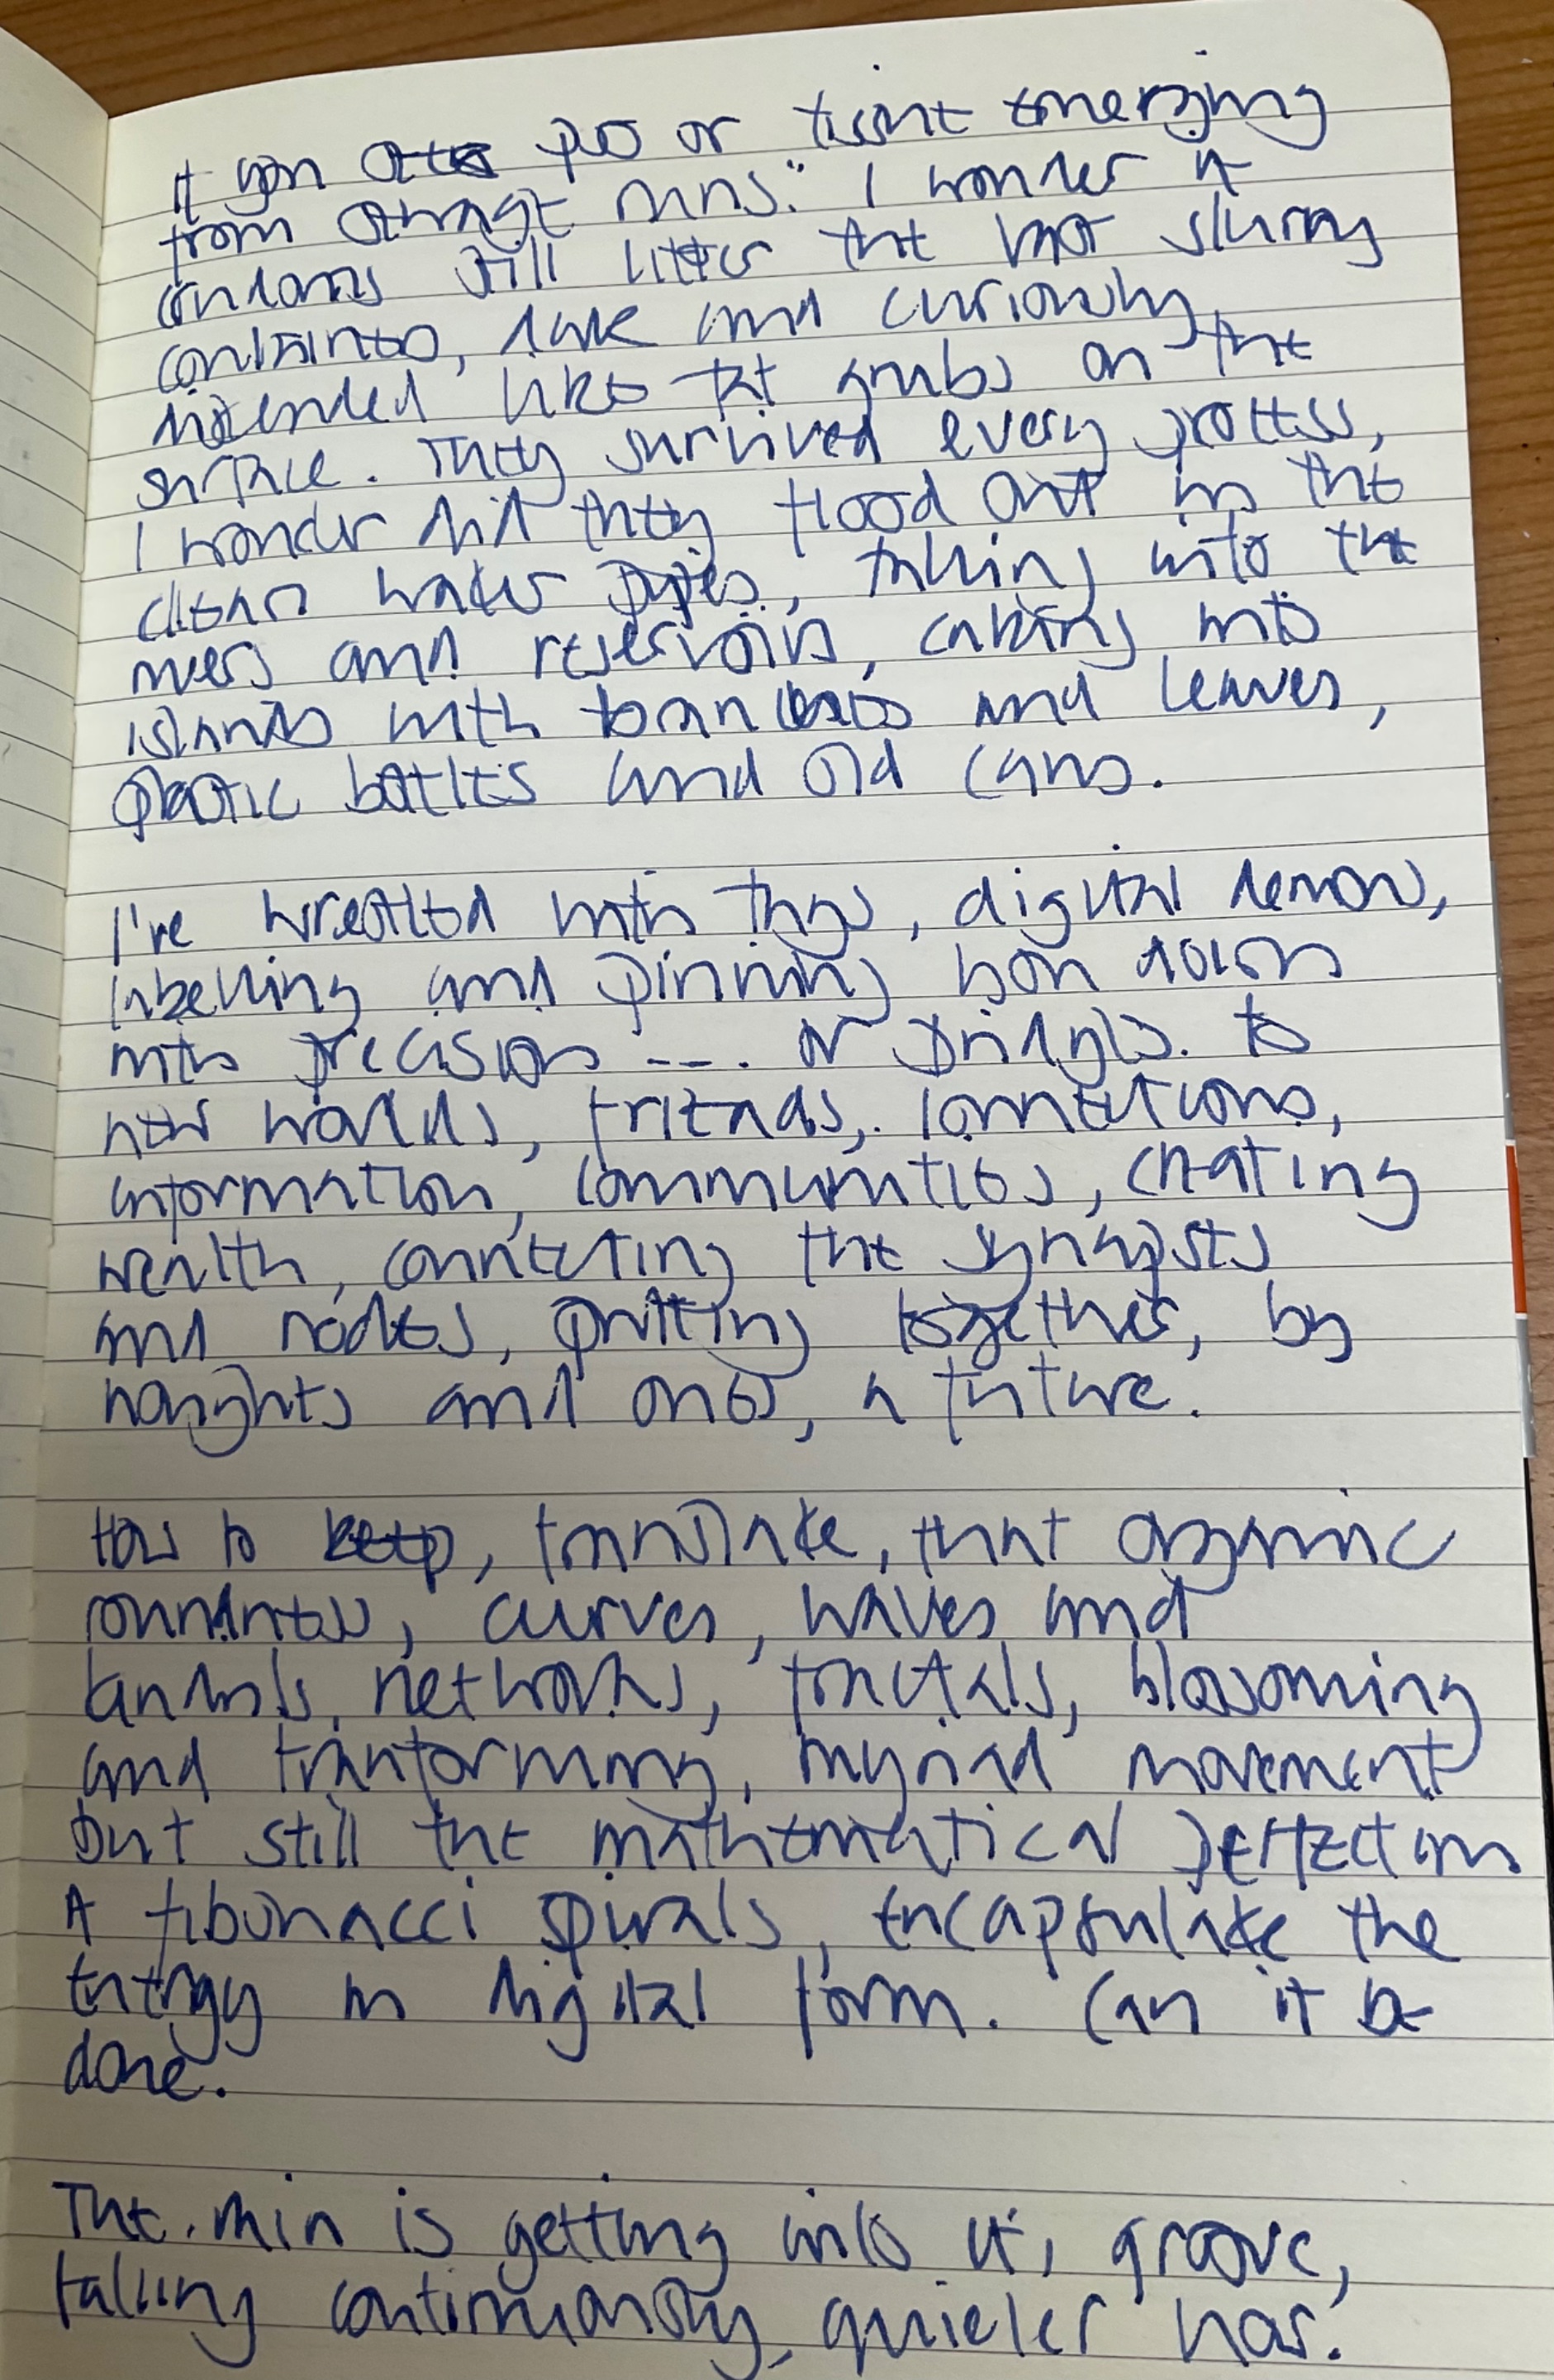 if you see poo or tissue emerging
from strange runs." I wonder if
condoms still litter the vast slurry
containers, dark and curiously
distended like fat grubs on the
surface. They survived every process,
I wonder did they flood out in the
clean water pipes, falling into the
rivers and reservoirs, caking into
islands with branches and leaves,
plastic bottles and old cans.
I've wrestled with this, digital demons,
labelling and pinning down
with precision .... or bridges to
new worlds, friends, connections,
information, communities, creating
wealth, connecting the synapses
and nodes, putting together, by
noughts and ones, a future.
How to keep, translate, that organic
roundness, curves, waves and
tendrils, networks, fractals, blossoming
and tranforming, myriad movement
but still the mathematical perfection
of fibonacci spirals, encapsulate the
energy in digital form. Can it be
done.
The rain is getting into its groove,
falling continuously, quieter now.